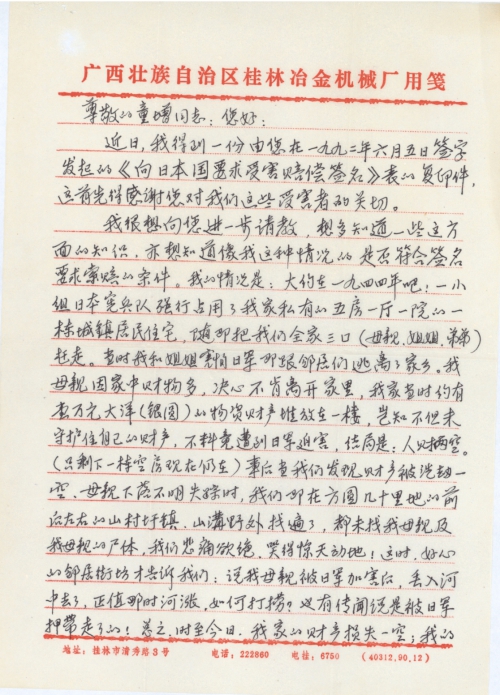 广西壮族自治区桂林冶金机械厂用笺
尊敬的童增同志:您好:
近日,我得到一份由您在一九九三年六月五日签字
发起的《向日本国要求受害赔偿签名》表的复印件,
这首先得感谢您对我们这些受害者的关切。
我很想向您进一步请教,想多知道一些这方
面的知识,亦想知道像我这种情况的是否符合签名
要求索赔的条件。我的情况是:大约在一九四四年吧!一小
组日本宪兵队强行占用了我家私有的五房一厅一院的一
栋城镇居民住宅,随即把我们全家三口(母亲、姐姐、弟弟)
赶走。当时我和姐姐害怕日军即跟邻居们逃离了家乡。我
母亲因家中财物多,决心不肯离开家里,我家当时约有
壹万元大洋(银圆)的物资财产堆放在一楼,岂知不但未
守护住自己的财产,不料竟遭到日军迫害,结局是:人财两空。
(只剩下一栋空房现在仍在)事后当我们发现财产被洗劫一
空、母亲下落不明失踪时,我们即在方圆几十里地的前
后左右的山村圩镇、山沟野外找遍了,都未找我母亲及
我母亲的尸体,我们悲痛欲绝,哭得惊天动地!这时,好心
的邻居街坊才告诉我们:说我母亲被日军加害后,丢入河
中去了,正值那时河涨,如何打捞?也有传闻说是被日军
押带走了的!总之,时至今日,我家的财产损失一空;我的
地址:桂林市清秀路3号 电话:222860 电挂:6750 (40312.90.12)